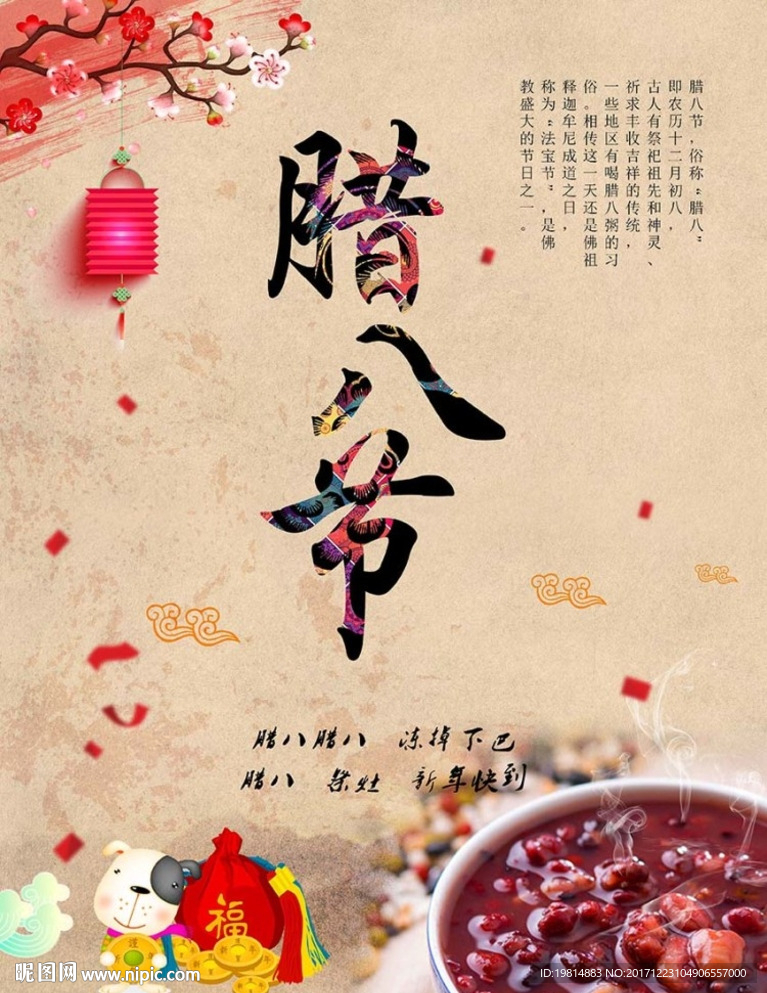 腊八节
腊八节，俗称“腊八”
即农历十二月初八，
古人有祭祀祖先和神灵、
祈求丰收吉祥的传统，
一些地区有喝腊八粥的习
俗。相传这一天还是佛祖
释迦牟尼成道之日，
称为“法宝节”，是佛
教盛大的节日之一。
腊八腊八 冻掉下巴
腊八 祭灶 新年快到
福
昵图网 www.nipic.com
ID:19814883 NO:20171223104906557000